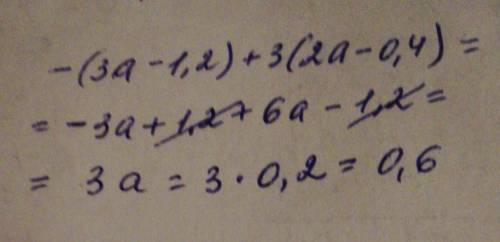 -(3a-1,2)+3(2a-0,4)=
= -3a+1,2+6a-1,2=
= 3a = 3·0,2 = 0,6